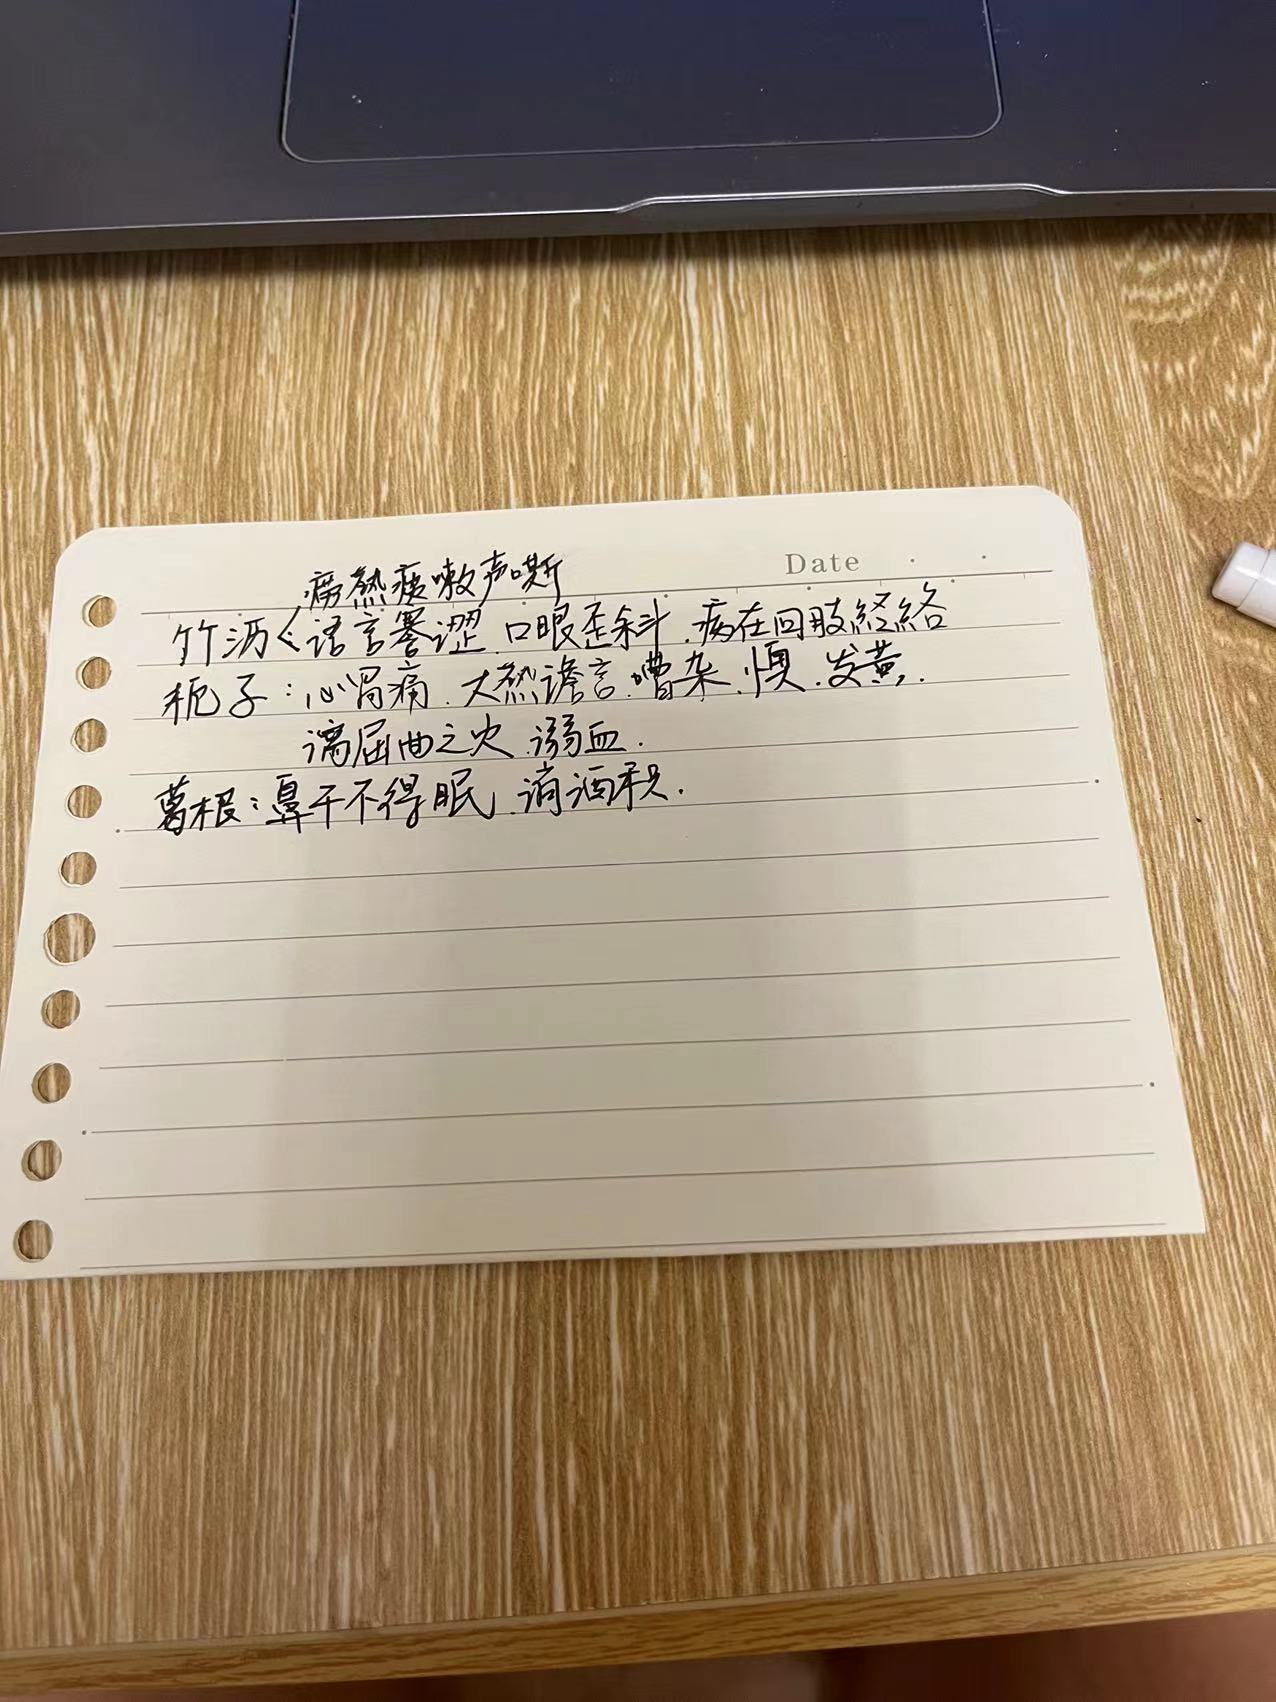 Date
痨热痰嗽声嘶
竹沥〈语言蹇涩、口眼歪斜、病在四肢经络
栀子：心胃痛、大热谵言、嘈杂、惧、发黄、
屈曲之火、溺血.
葛根：鼻干不得眠、消酒积.